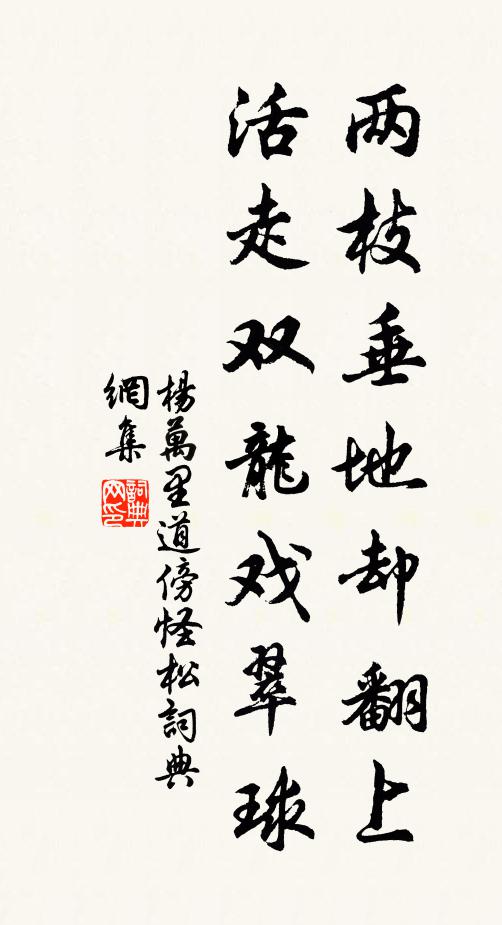 两枝垂地却翻上
活走双龍戏翠球
楊萬里道傍怪松詞典
網集
詞典网印